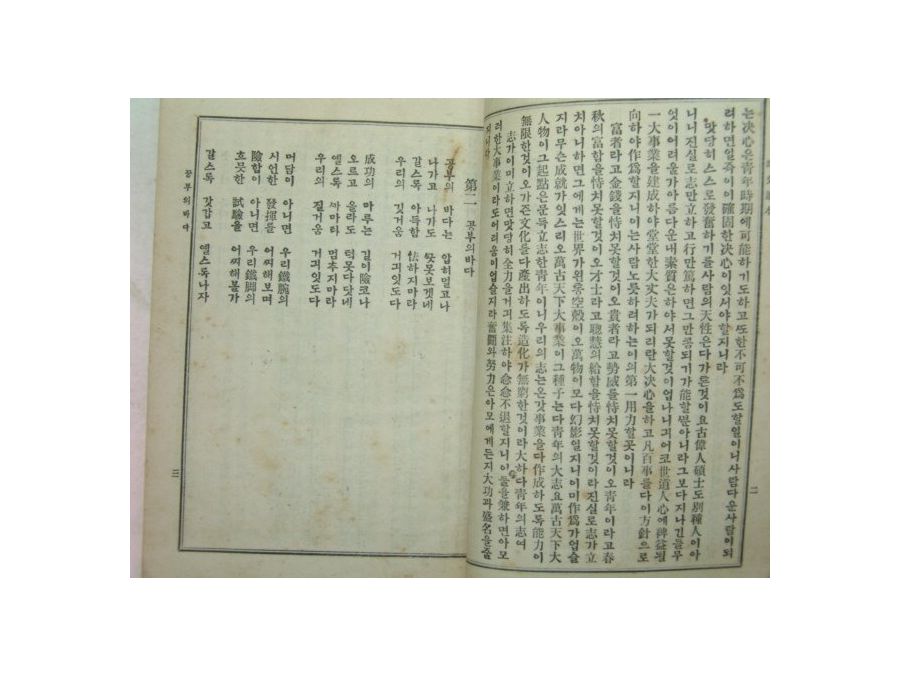 는決心은靑年時期에可能하기도하고또한不可不爲도할일이니사람다운사람이되
려하면일즉이이確固한決心이잇서야할지니라
맛당히스스로發奮하기를사람의天性은다가튼것이요古偉人碩士도別種人이아
니니眞실로志만立하고行만篤하면그만콤되기가能할뿐아니라그보다지나긴들무
엇이어려울가아름다운내素質은하야서못할것이업나니긔어코世道人心에裨益될
一大事業을建成하야堂堂한大丈夫가되리란大決心을하고凡百事를다이方針으로
向하야作爲할지니이는사람노릇하려하는이의第一用力할곳이니라
富者라고金錢을恃치못할것이오貴者라고勢威를恃치못할것이오靑年이라고春
秋의富함을恃치못할것이오才士라고聰慧의給함을恃치못할것이라진실로志가立
치아니하면그에게는世界가왼통空殼이오萬物이모다幻影일지니이미作爲가업슬
지라무슨成就가잇스리오萬古天下大事業이그種子는다靑年의大志요萬古天下大
人物이그起點은문득立志한靑年이니우리의志는온갓事業을다作成하도록能力이
無限한것이오가즌文化를다產出하도록造化가無窮한것이라大하다靑年의志여
志가이미立하면맛당히全力을거긔集注하야念念不退할지니이둘을兼하면아모
러한大事業이라도어려움이업슬지라奮鬪와努力은아모에게든지大功과盛名을줄
지니라
二
第二 공부의바다
공부의 바다는 압히멀고나
나가고 나가도 쯧못보겟네
갈스록 아득함 怯하지마라
우리의 깃거움 거긔잇도다
成功의 마루는 길이險코나
오르고 올라도 턱못다닷네
옐스록 까마라 멈추지마라
우리의 질거움 거긔잇도다
머담이 아니면 우리鐵腕의
시언한 發揮를 어찌해보며
險함이 아니면 우리鐵脚의
흐믓한 試驗을 어찌해볼가
갈스록 갓갑고 옐스록나자
공부의바다
三